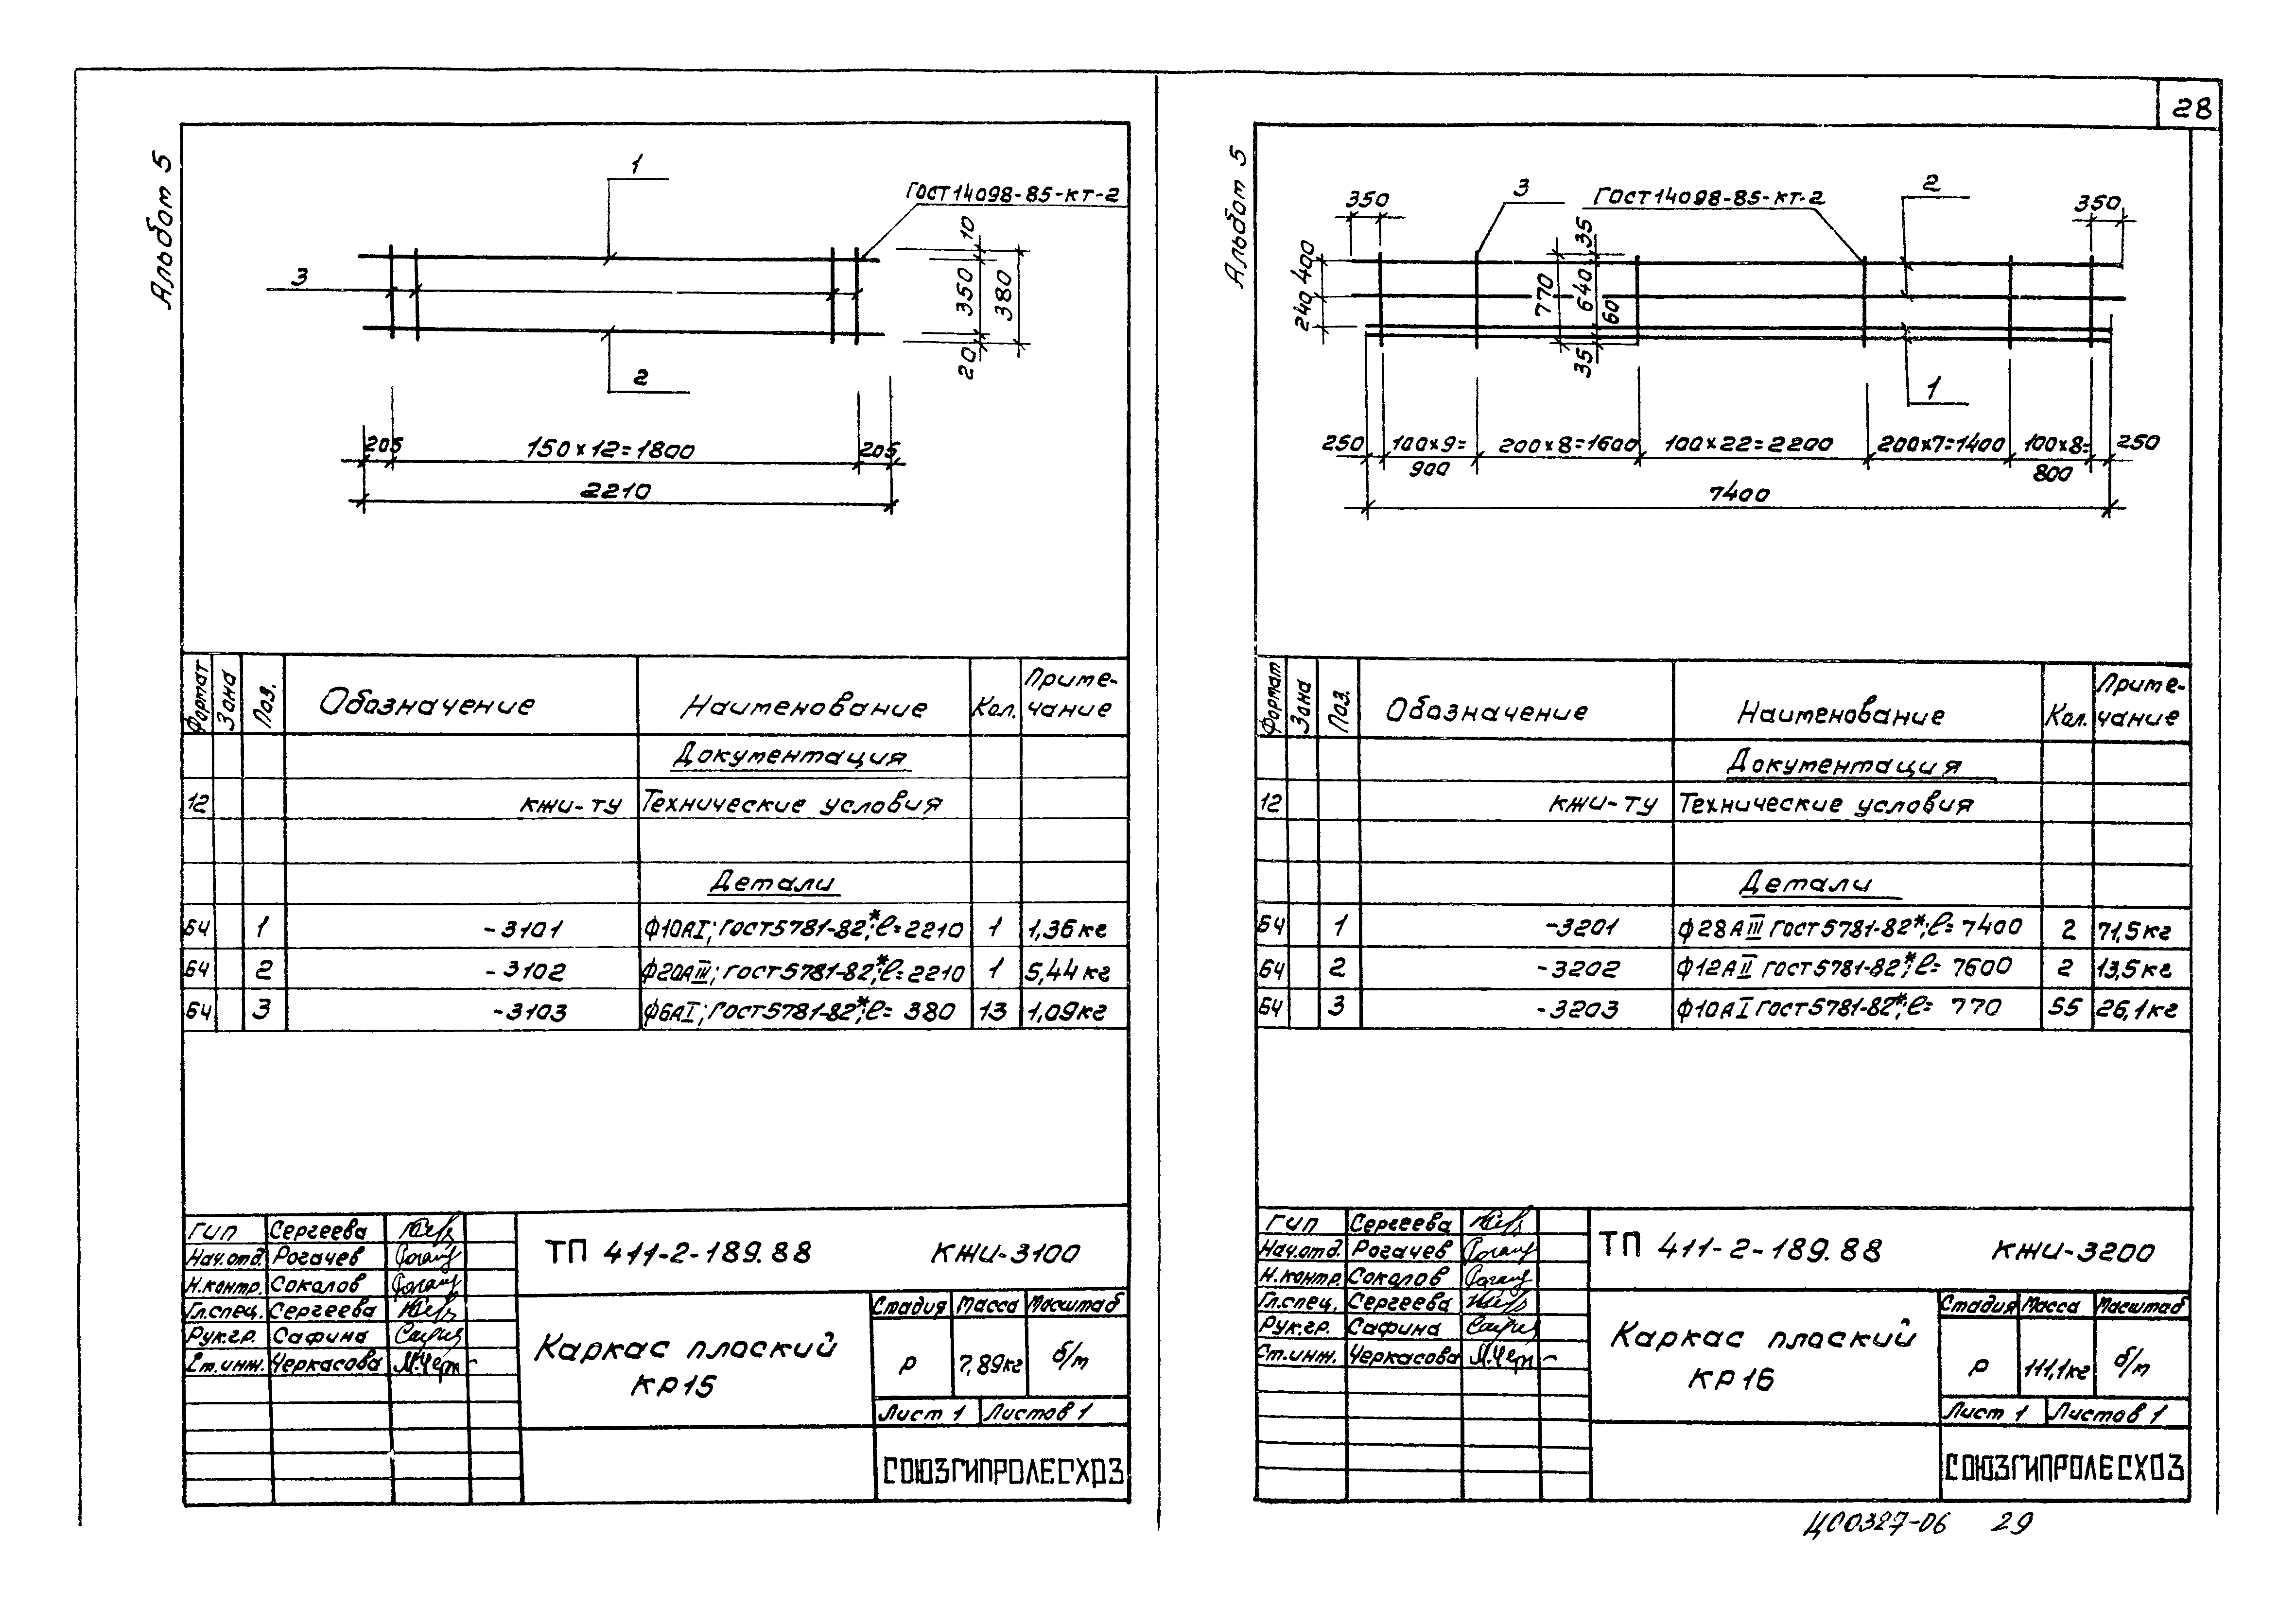 28
Альбом 5
1
ГОСТ14098-85-КТ-2
3
10
350
380
20
2
205
150×12=1800
205
2210
Формат Зона Поз. Обозначение Наименование Кол. Приме-
чание
Документация
12 КЖИ-ТУ Технические условия
Детали
БЧ 1 -3101 ф10АI; ГОСТ5781-82*; ℓ=2210 1 1,36кг
БЧ 2 -3102 ф20АIII; ГОСТ5781-82*; ℓ=2210 1 5,44кг
БЧ 3 -3103 ф6АI; ГОСТ5781-82*; ℓ= 380 13 1,09кг
ГИП Сергеева
Нач.отд. Рогачев
Н.контр. Соколов
Гл.спец. Сергеева
Рук.гр. Сафина
Ст.инж. Черкасова
ТП 411-2-189.88 КЖИ-3100
Каркас плоский
КР15
Стадия Масса Масштаб
Р 7,89кг б/м
Лист 1 Листов 1
СОЮЗГИПРОЛЕСХОЗ
Альбом 5
350
3
ГОСТ14098-85-КТ-2
2
350
400
240
770
35
640
60
35
1
250 100×9= 200×8=1600 100×22=2200 200×7=1400 100×8= 250
900 800
7400
Формат Зона Поз. Обозначение Наименование Кол. Приме-
чание
Документация
12 КЖИ-ТУ Технические условия
Детали
БЧ 1 -3201 ф28АIII ГОСТ5781-82*; ℓ= 7400 2 71,5кг
БЧ 2 -3202 ф12АII ГОСТ5781-82*; ℓ= 7600 2 13,5кг
БЧ 3 -3203 ф10АI ГОСТ5781-82*; ℓ= 770 55 26,1кг
ГИП Сергеева
Нач.отд. Рогачев
Н.контр. Соколов
Гл.спец. Сергеева
Рук.гр. Сафина
Ст.инж. Черкасова
ТП 411-2-189.88 КЖИ-3200
Каркас плоский
КР16
Стадия Масса Масштаб
Р 111,1кг б/м
Лист 1 Листов 1
СОЮЗГИПРОЛЕСХОЗ
ЦС0327-06 29